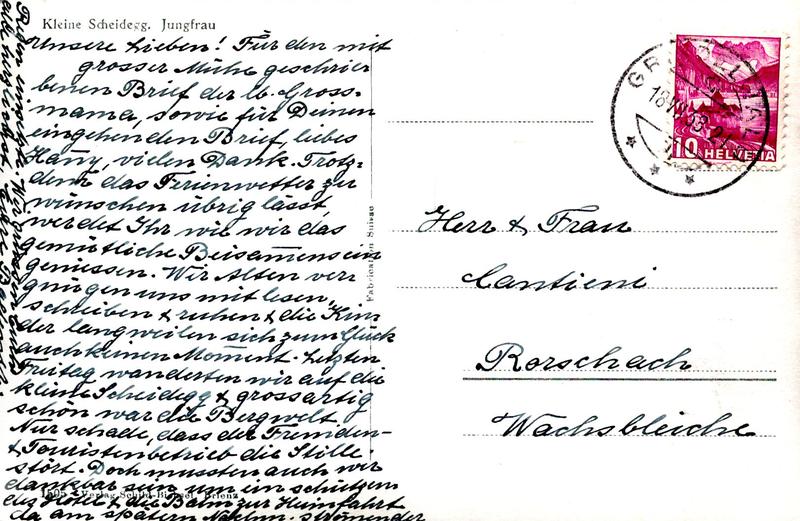 Kleine Scheidegg. Jungfrau
Unsere Lieben! Für den mit
grosser Mühe geschrie-
benen Brief der lb. Gross-
mama, sowie für Deinen
eingehenden Brief, liebes
Hanny, vielen Dank. Trotz-
dem das Ferienwetter zu
wünschen übrig lässt,
werdet Ihr wie wir das
gemütliche Beisamensein
geniessen. Wir Alten ver-
gnügen uns mit lesen,
schreiben & ruhen & die Kin-
der langweilen sich zum Glück
auch keinen Moment. Letzten
Freitag wanderten wir auf die
kleine Scheidegg & grossartig
schön war die Bergwelt.
Nur schade, dass der Fremden-
& Touristenbetrieb die Stille
stört. Doch mussten auch wir
dankbar sein um ein schützen-
des Hotel & die Bahn zur Heimfahrt
da am spätern Nachm. strömender
Fabrication Suisse
Verlag Brienz
10 HELVETIA
Herr & Frau
Cantieni
Rorschach
Wachsbleiche